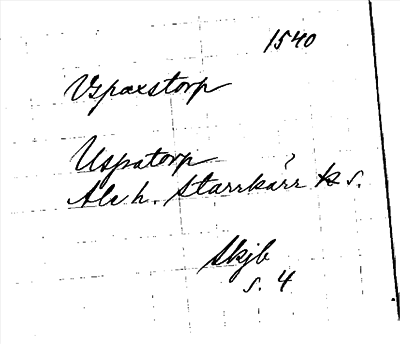 1540
Vspaxstorp
Uspatorp
Ale h. Starrkärr ks.
Skjb
s. 4